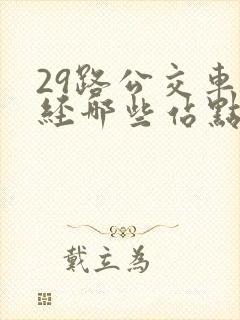 29路公交車
經那些佔點
戴立為